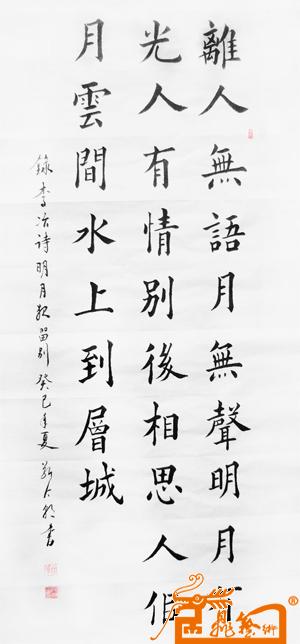 離人無語月無聲明月有
光人有情别後相思人似
月雲間水上到層城
錄李冶詩明月夜留别 癸巳年夏 書
藝術